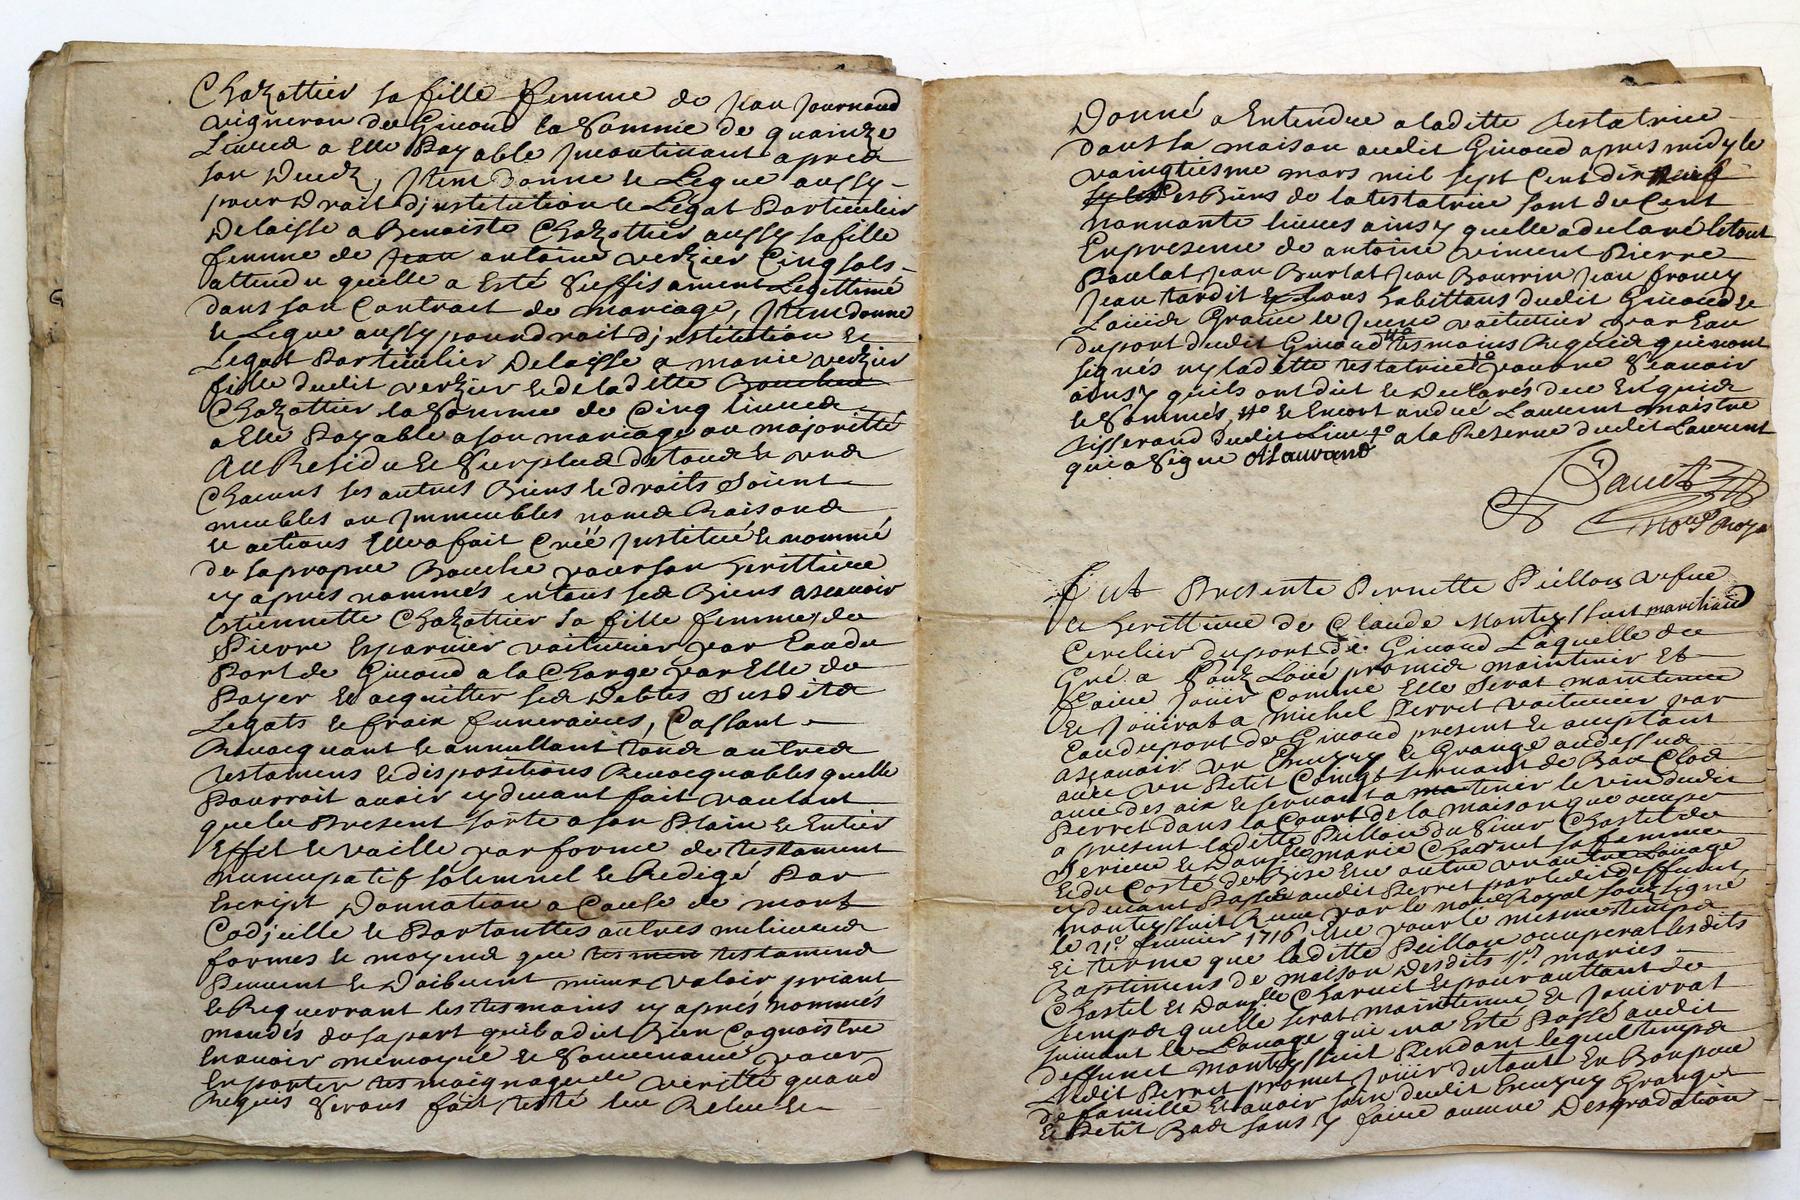 Chazottier sa fille femme de Jean Journoud
vigneron de Givord la somme de quainze
Livres a Elle Payable Jncontinant apres
son Decedz, Jtem donne & Legue aussy
pour droit djnstitution & Legat Particulier
Delaisse a Benoiste Chazottier aussy sa fille
femme de Jean antoine verzier Cinq sols
attendu quelle a Esté Suffisament Legittimé
dans son Contract de mariage, Jtem donne
& Legue aussy pour droit djnstitution &
Legat Particulier Delaisse a marie verzier
fille dudit verzier & de ladette
Chazottier la Somme de Cinq livres
a Elle Payable a son mariage ou majoritté
Au Residu & Surplus de tous & uns
Chacuns ses autres Biens & droits Soient
meubles ou Jmmeubles noms Raisons
& actions Elle a fait Créé Jnstitué & nommé
de sa propre Bouche pour son herittiere
cy apres nommés en tous ses Biens ascavoir
Estiennette Chazottier sa fille femme de
Pierre Esparnier voiturier par Eau du
Port de Givord a la Charge par Elle de
Payer & acquitter ses Debtes Susdits
Legats & fraix funeraires, Cassant
Revocquant & annullant tous autres
testamens & dispositions Revocquables quelle
Pourroit avoir cy devant fait voulant
que le Present sorte a son Plain & Entier
Effet & vaille par forme de testament
nuncupatif solemnel & Redigé Par
Escript Donnation a Cause de mort
Codjcille & Par touttes autres meilieures
formes & moyens que testamens
Peuvent & Doibvent mieux valoir priant
& Requerrant les tesmoins cy aprés nommés
mandés de sa part quil a dict Bien Cognoistre
En avoir memoyre & Souvenance pour
En porter tesmoignage de veritté quand
Requis Seront fait testé leu Releu &
Donné a Entendre a ladette testatrice
dans sa maison audit Givord apres midy le
vaingtiesme mars mil sept Cent dix neuf
Les Biens de la testatrice sont de Cent
nonnante livres ainsy quelle a declaré le tout
En presence de antoine viment Pierre
Poulat Jean Burlat Jean Bourrin Jean francy
Jean tardit tous habittans dudit Givord &
Louis Graine le Jeune voiturier par Eau
du port dudit Givord tesmoins Requis qui nont
signés ny ladette testatrice pour ne Scavoir
ainsy quils ont dict & declarés de ce Enquis
& Sommés, & Encort andré Laurent maistre
tisserand dudit Lieu a la Reserve dudit Laurent
qui a Signe A Laurand
Nore Roya
Fut Presente Pernette Peillon vefve
& heritiere de Claude Monteyssuit marchand
Cerclier du port de Givord Laquelle de
Gré a Soubz Loüé promis maintenir Et
faire Jouir Comme Elle Serat maintenue
& Jouirat a Michel Perret voiturier par
Eau du port de Givord present & acceptant
ascavoir un Cuvier & Grange au dessus
avec un Petit Servant de Bas Clos
avec des aix & servant a tenir le vin dudit
Perret dans la Court de la maison que occupe
a present ladette Peillon du Sieur Chastel de
Perieue & Damlle marie Charvet sa femme
& du Costé de Bize Et outre un autre Louage
cy devant Passé audit Perret par ledit deffunt
Monteyssuit Receu par le notre Royal soubsigné
le 21e fevrier 1716 & ce pour le mesme temps
Et terme que ladette Peillon occuperat lesdits
Baptimens de maison Desdits Srs mariés
Chastel & Damlle Charvet & pour auttant de
temps quelle serat maintenue Et Jouirrat
suivant le Louage qui en a Esté Passé audit
deffunct Monteyssuit Pendant lequel temps
Ledit Perret promet Jouir du tout En Bon pere
de famille Et avoir soin dudit Cuvier Grange
& Petit Bas sans y faire aucune Desgradation